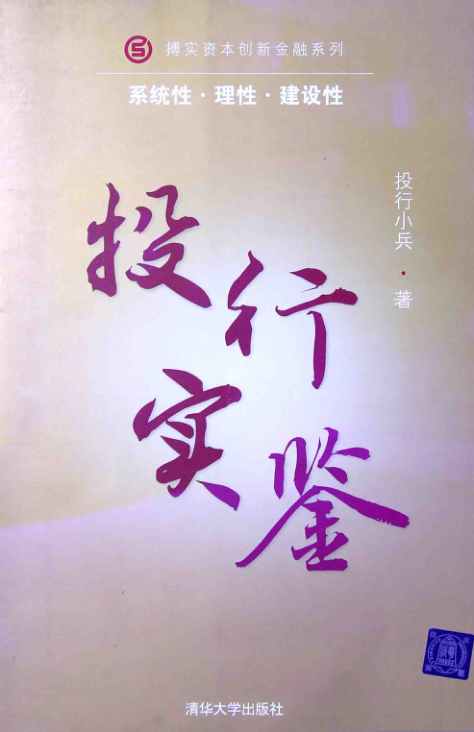 搏实资本创新金融系列
系统性·理性·建设性
投行小兵·著
投行
实鉴
清华大学出版社